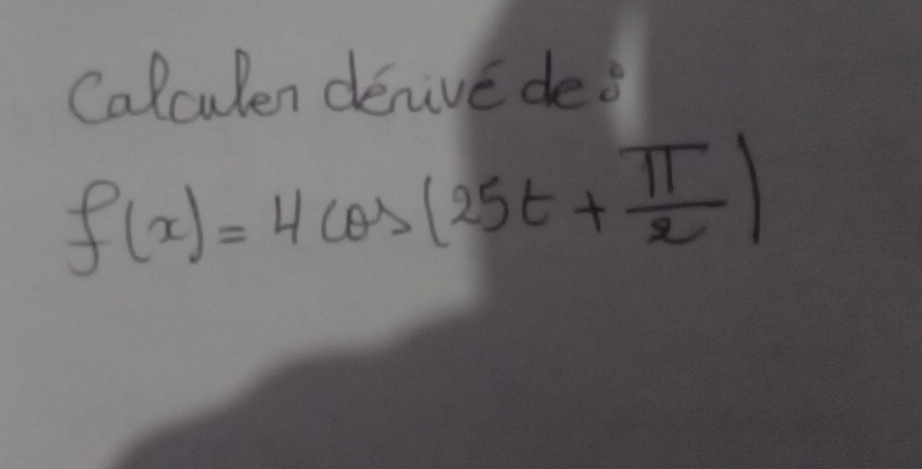 Calculer dérivé de :
f(x) = 4 cos(25t + π/2)